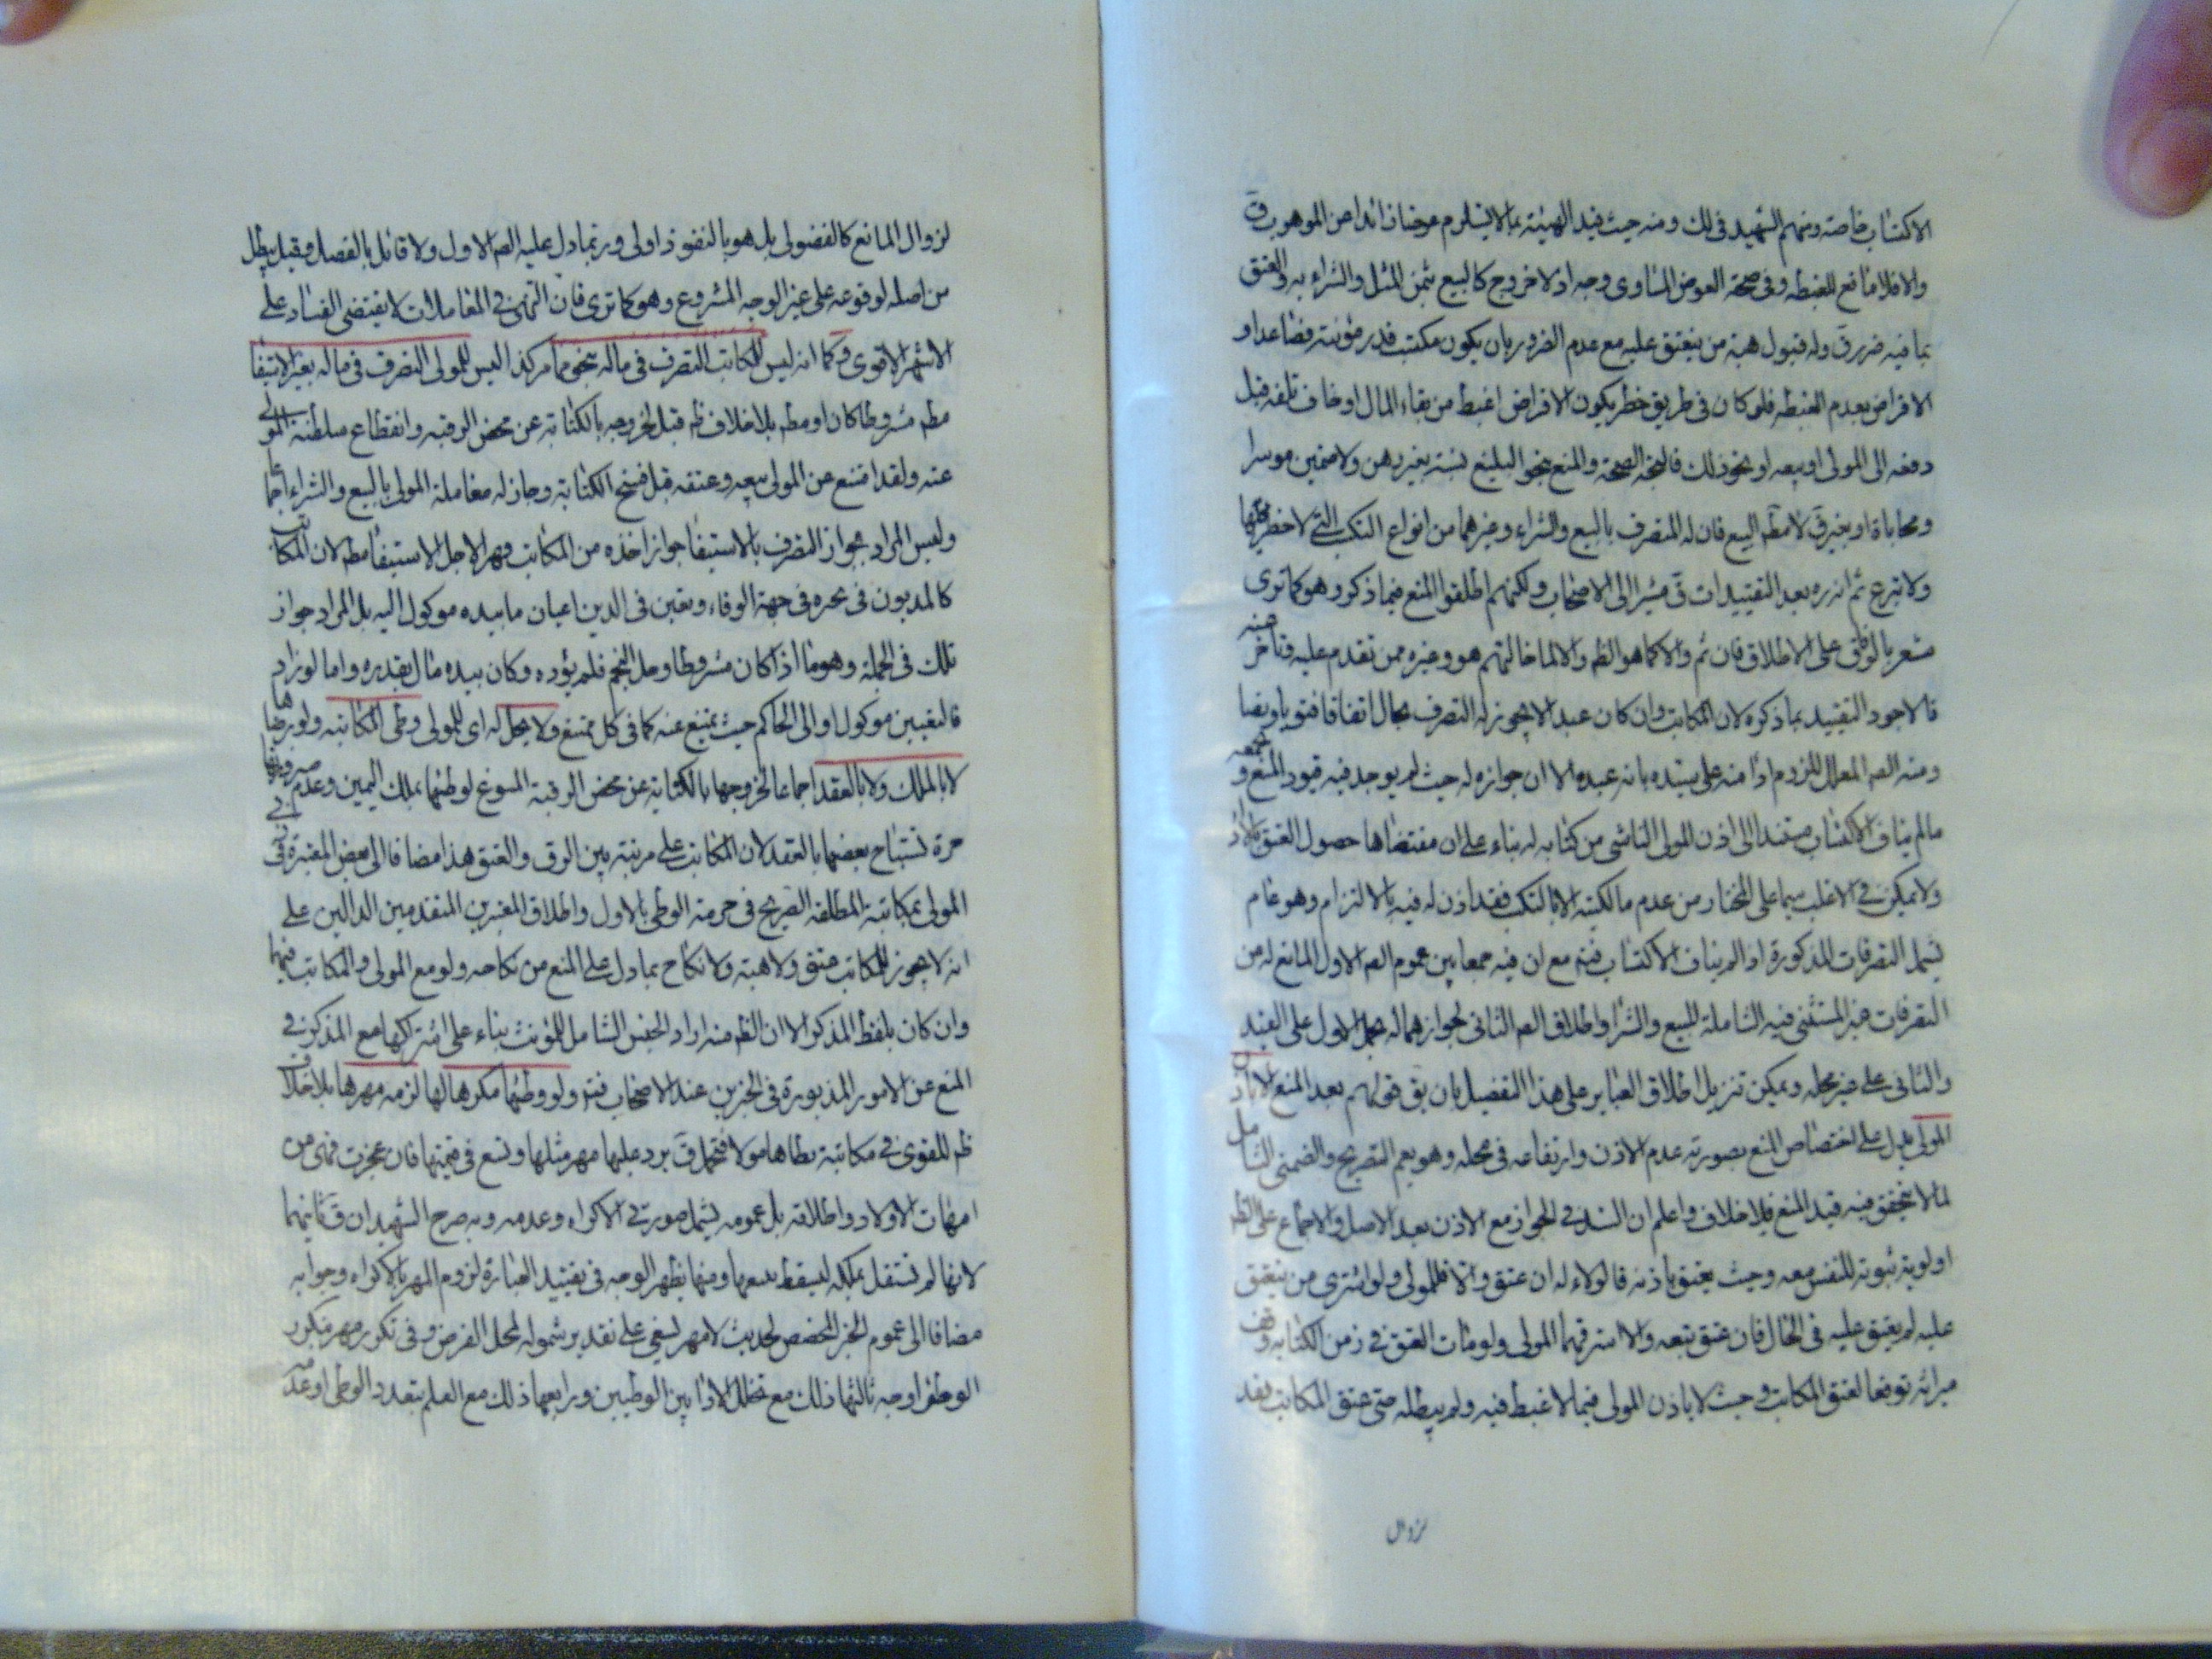 الاكتساب خاصة ومنهم الشهيد في لك ومنه حيث قيد الهبة بما لا يستلزم عوضا زائدا عن الموهوب ق
والا فلا مانع للغبطه وفي صحة العوض المساوي وجه اذ لا خروج كالبيع بثمن المثل والشراء به والعتق
بما فيه ضرر ق وله قبول هبة من ينعتق عليه مع عدم الضرر بان يكون مكتسب قدر مؤنته فصاعدا و
الاقراض بعدم الغبطه فلو كان في طريق خطر يكون الاقراض اغبط من بقاء المال او خاف تلفه قبل
دفعه الى المولى او بيعه او نحو ذلك فالمتجه الصحة والمنع بنحو البيع نسيئة بغير رهن ولا ضمين موسرا
ومحاباة او بغير ق لا مطم البيع فان له التصرف بالبيع والشراء وغيرهما من انواع التكسب التي لا خطر فيها
ولا تبرع ثم انه ره بعد التقييدات ق مشيرا الى الاصحاب ولكنهم اطلقوا المنع فيما ذكر وهو كما ترى
مشعر بالوفق على الاطلاق فان تم والا كما هو الظم والا لما خالفهم هو وغيره ممن تقدم عليه وتأخر عنه
فالاجود التقييد بما ذكره لان المكاتب وان كان عبدا لا يجوز له التصرف بحال اتفاقا فتوى ونصا
ومنه الصم المعلل للزوم اذا منه على سيده بانه عبده الا ان جوازه له حيث لم يوجد فيه قيود المنع و
مالم يناف الاكتساب مستند الى اذن المولى الناشي من كتابه له بناء على ان مقتضاها حصول العتق بالاداء
ولا يمكن في الاغلب سيما على المختار من عدم مالكيته الا بالتكسب فقد اذن له فيه بالالتزام وهو عام
يشمل التصرفات المذكورة اذ لم يناف الاكتساب فتم مع ان فيه جمعا بين عموم الصم الاول المانع له من
التصرفات غير المستثنى فيه الشاملة للبيع والشرا واطلاق الصم الثاني لجوازهما له بحمل الاول على القيد
والثاني على غير محله ويمكن تنزيل اطلاق العباير على هذا التفصيل بان يق قولهم بعد المنع الا باذن
المولى يدل على اختصاص المنع بصورة عدم الاذن وارتفاعه في محله وهو يعم التصريح والضمني الشامل
لما لا يتحقق فيه قيد المنع فلا خلاف واعلم ان السند في الجواز مع الاذن بعد الاصل والاجماع على الظم
اولوية ثبوته للنفس معه وحيث يعتق باذنه فالولاء له ان عتق والا فللمولى ولو اشترى من ينعتق
عليه لم يعتق عليه في الحال فان عتق تبعه والا استرقهما المولى ولو مات العتق في زمن الكتابه وقف
ميراثه توقعا لعتق المكاتب وحيث لا باذن المولى فيما لا غبط فيه ولم يبطله حتى عتق المكاتب نفذ
لزوال
لزوال المانع كالفضولي بل هو بالنفوذ اولى وربما دل عليه الصم الاول ولا قائل بالفصل وقيل يبطل
من اصله لوقوعه على غير الوجه المشروع وهو كما ترى فان النهي في المعاملات لا يقتضي الفساد على
الاشهر الاقوى وكما انه ليس للمكاتب التصرف في ماله بنحو ما مر كذا ليس للمولى التصرف في ماله بغير الاستيفا
مطم مشروطا كان او مطم بلا خلاف ظم قبل لخروجه بالكتابة عن محض الرقيه وانقطاع سلطنة المولى
عنه ولقد امتنع عن المولى بيعه وعتقه قبل فسخ الكتابة وجاز له معاملة المولى بالبيع والشراء اجماعا
وليس المراد بجواز التصرف بالاستيفا جواز اخذه من المكاتب قهرا لاجل الاستيفا مطم لان المكاتب
كالمديون في تخيره في جهة الوفاء وتعين في الدين اعيان ما بيده موكول اليه بل المراد جواز
تلك في الجملة وهو ما اذا كان مشروطا وحل النجم فلم يؤده وكان بيده مال بقدره واما لو زاد
فالتعيين موكول او الى الحاكم حيث يمتنع عنه كما في كل ممتنع ولا يحل له اى للمولى وطى المكاتبه ولو برضاها
لا بالملك ولا بالعقد اجماعا لخروجها بالكتابة عن محض الرقية المسوغ لوطئها بملك اليمين وعدم صيرورتها
حرة تستباح بعضها بالعقد لان المكاتب على مرتبة بين الرق والعتق هذا مضافا الى بعض المعتبرة في
المولى بمكاتبة المطلقه الصريح في حرمة الوطى بالاول واطلاق المعتبرين المتقدمين الدالين على
انه لا يجوز للمكاتب عتق ولا هبة ولا نكاح بما دل على المنع من نكاحه ولو مع المولى والمكاتب فيهما
وان كان بلفظ المذكر الا ان الظم منه اراد الجنس الشامل للمؤنث بناء على اشتراكها مع المذكر في
المنع عن الامور المذبورة في الخبرين عند الاصحاب فتم ولو وطئها مكرها لها لزمه مهرها بلا خلاف
ظم للقوى في مكاتبة يطاها مولاه فتحمل ق يرد عليها مهر مثلها وتسع في قيمتها فان عجزت فهي من
امهات الاولاد واطلاقه بل عمومه يشمل صورتي الاكراه وعدمه وبه صرح الشهيدان ق ثانيهما
لانها لم تستقل بملكه ليسقط ببيعها ومنها يظهر الوجه في تقييد العبارة لزوم المهر بالاكراه وجوابه
مضافا الى عموم الخبر المخصص لحديث لا مهر لبغي على تقدير شموله لمحل الفرض وفي تكرر مهر بتكرر
الوطى اوجه ثالثها ذلك مع تخلل الادا بين الوطيين ورابعها ذلك مع العلم بتعدد الوطى او عدمه